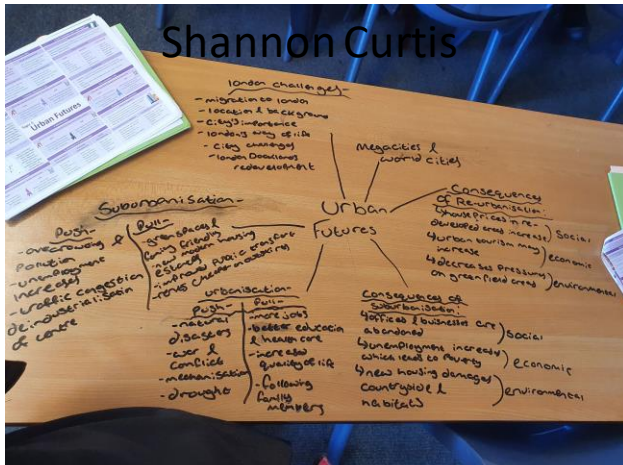 Shannon Curtis
Urban Futures
london challenges-
- migration to london
- location & background
- city's importance
- londons way of life
- city challenges
- london Docklands
redevelopment
Megacities &
world cities
Urban
Futures
Consequences
of Re-urbanisation:
↳ house prices in re-
developed areas increase
) social
↳ urban tourism may
increase
) economic
↳ decreases pressures
on greenfield areas
) environmental
Suburbanisation-
Push-
- overcrowding &
pollution
- unemployment
increases
- traffic congestion
deindustrialisation
of centre
Pull-
- greenspaces &
family friendly
- new modern housing
estates
- improved public transport
- rents cheaper
urbanisation-
Push-
- natural
disasters
- war &
conflict
- mechanisation
- drought
Pull-
- more jobs
- better education
& healthcare
- increased
quality of life
- following
family
members
Consequences of
suburbanisation:
↳ offices & businesses are
abandoned
) social
↳ unemployment increases
which leads to poverty
) economic
↳ new housing damages
countryside &
habitats
) environmental